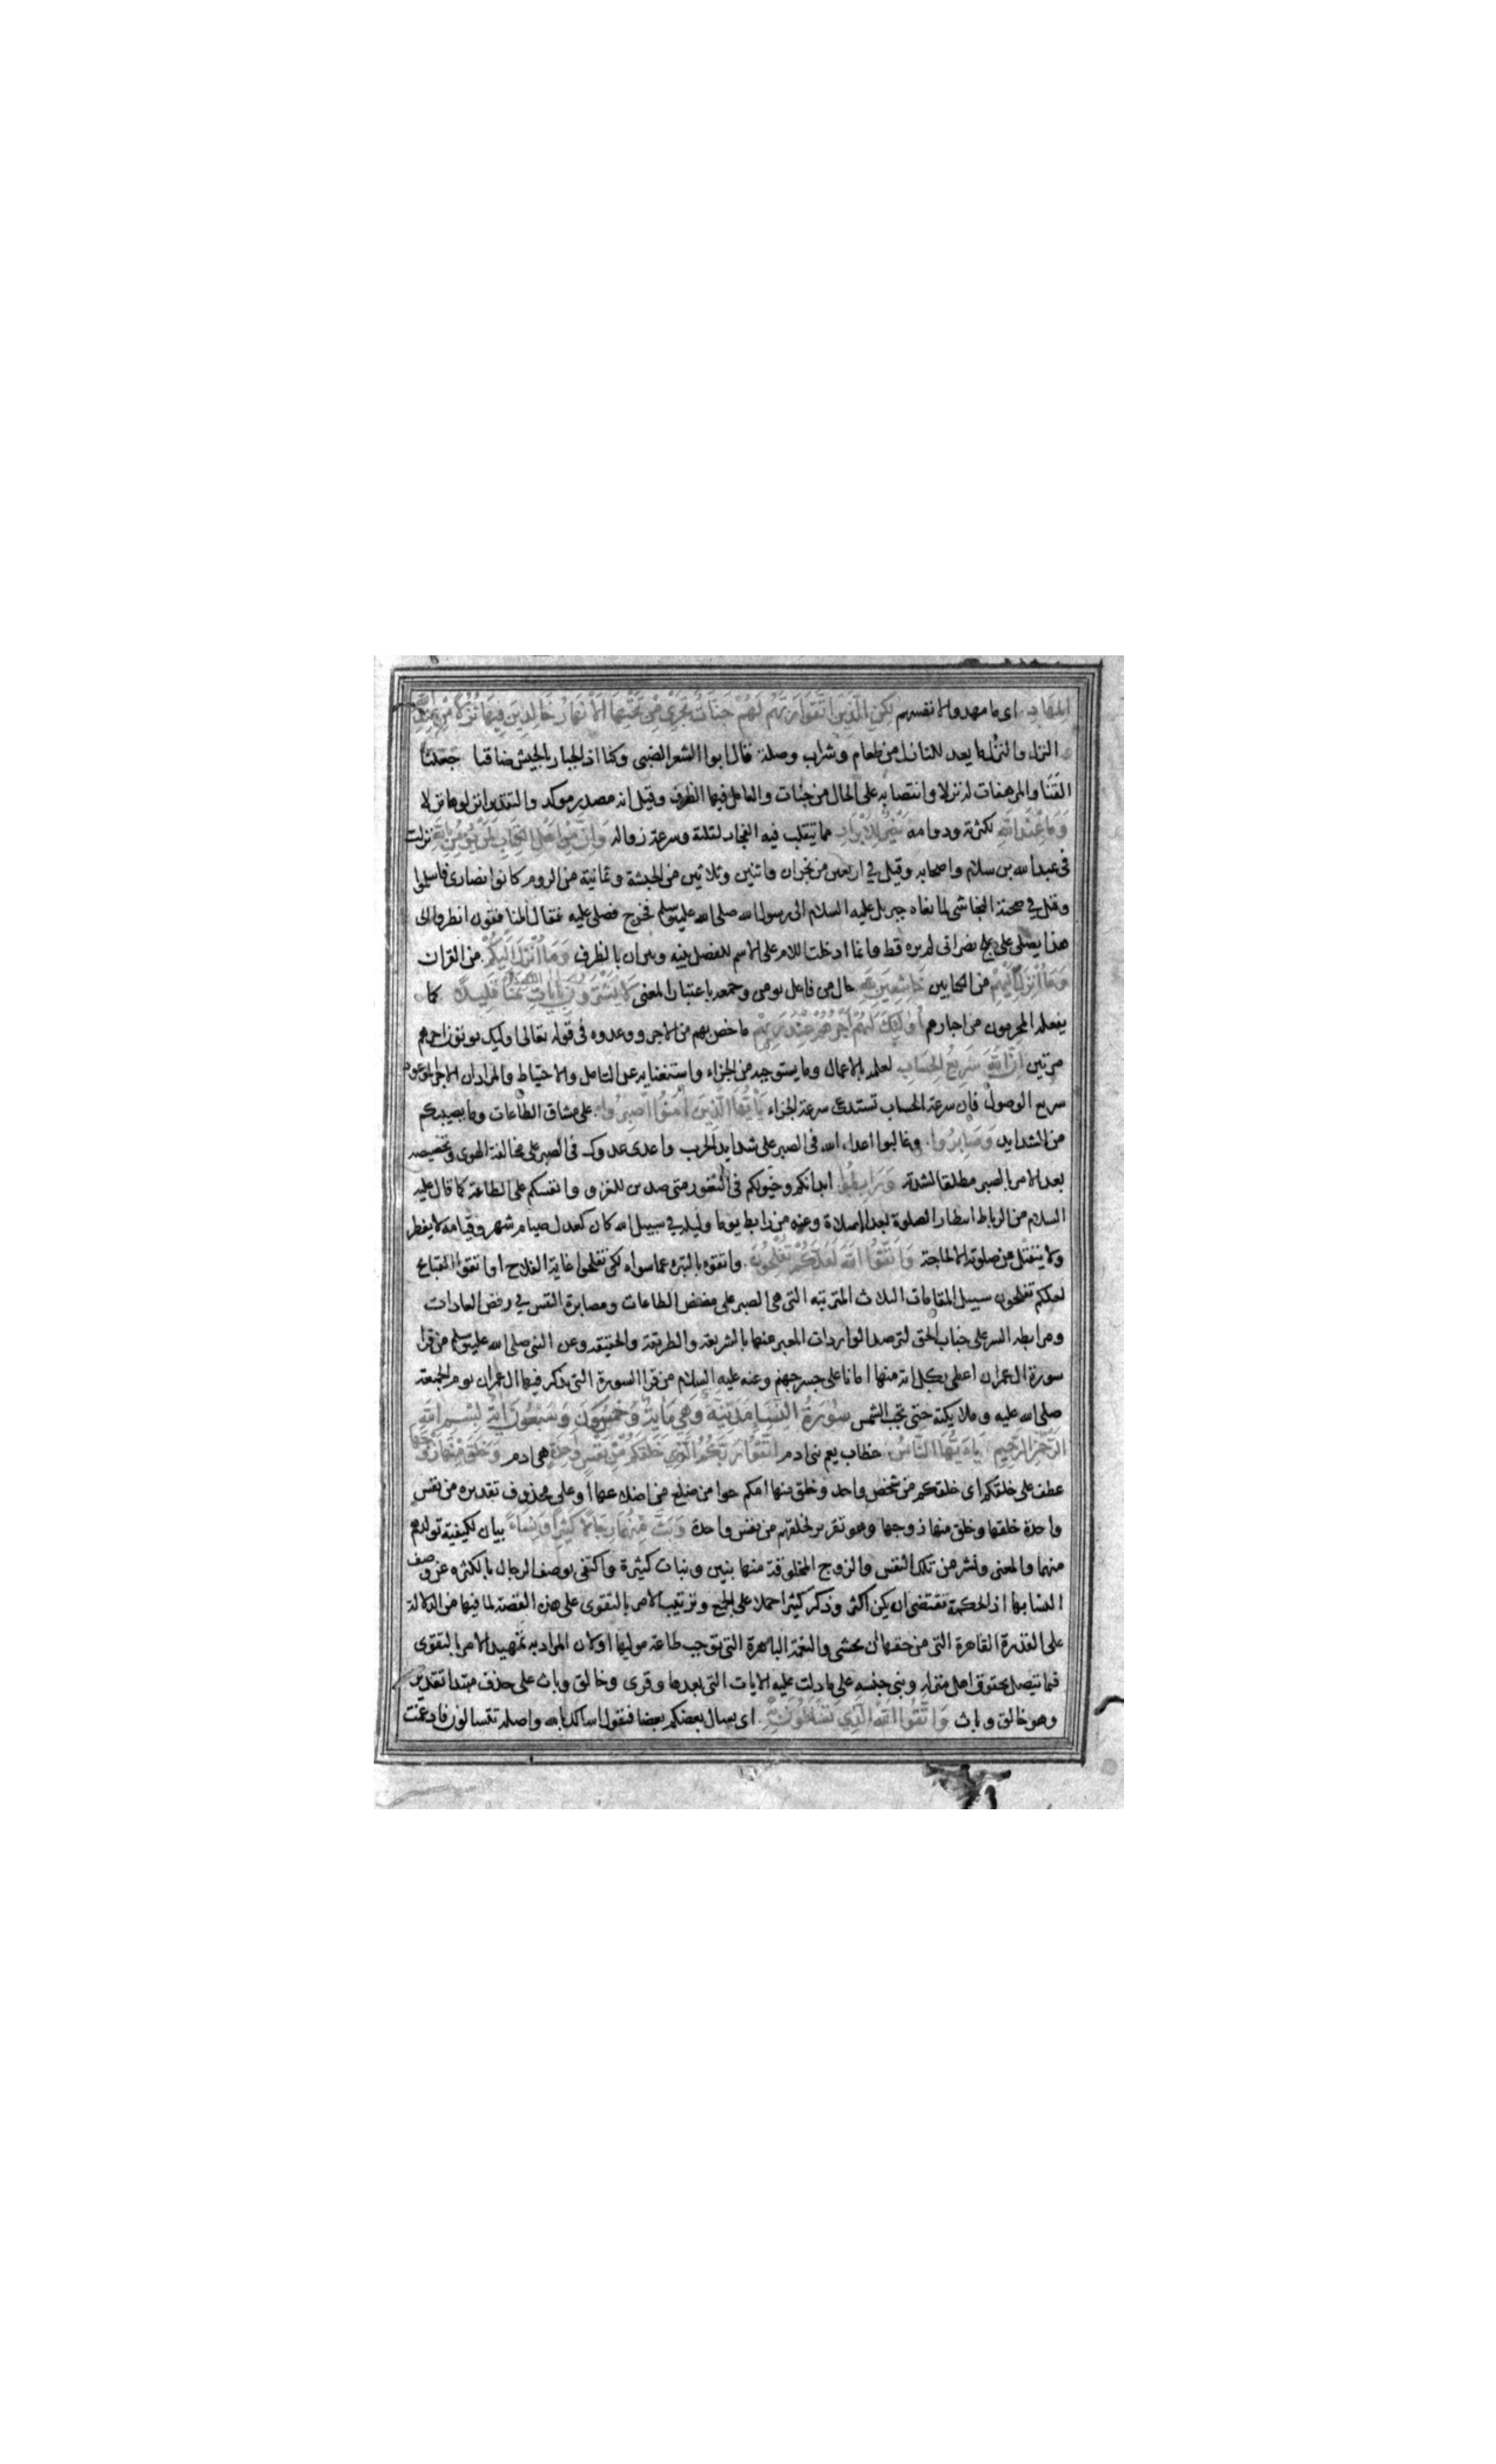 المهاد اى ما مهدوا لانفسهم لكِنِ الَّذِينَ اتَّقَوْا رَبَّهُمْ لَهُمْ جَنَّاتٌ تَجْرِى مِنْ تَحْتِهَا الْاَنْهَارُ خَالِدِينَ فِيهَا نُزُلًا مِنْ عِنْدِ اللَّهِ
النزل والنزل ما يعد للنازل من طعام وشراب وصلة قال ابوا الشعر الضبى وكنا اذ الجبار بالجيش ضافنا جعلنا
القَنَا والمرهفات له نزلا وانتصابه على الحال من جنات والعامل فيها الظرف وقيل انه مصدر موكد والتقدير انزلوها نزلا
وَمَا عِنْدَ اللَّهِ لكثرته ودوامه خَيْرٌ لِلْاَبْرَارِ مما يتقلب فيه الفجار لقلته وسرعة زواله وَاِنَّ مِنْ اَهْلِ الْكِتَابِ لَمَنْ يُؤْمِنُ بِاللَّهِ نزلت
فى عبد الله بن سلام واصحابه وقيل في اربعين من نجران واثنين وثلاثين من الحبشة وثمانية من الروم كانوا نصارى فاسلموا
وقيل في صحمة النجاشى لما نعاه جبريل عليه السلام الى رسول الله صلى الله عليه وسلم فخرج فصلى عليه فقال المنافقون انظروا الى
هذا يصلى على علج نصرانى لم يره قط وانما ادخلت اللام على الاسم للفصل بينه وبين ان بالظرف وَمَا اُنْزِلَ اِلَيْكُمْ من القران
وَمَا اُنْزِلَ اِلَيْهِمْ من الكتابين خَاشِعِينَ لِلَّهِ حال من فاعل يومن وجمعه باعتبار المعنى لَا يَشْتَرُونَ بِاٰيَاتِ اللَّهِ ثَمَنًا قَلِيلًا كما
يفعله المحرفون من احبارهم اُولٰئِكَ لَهُمْ اَجْرُهُمْ عِنْدَ رَبِّهِمْ ما خص بهم من الاجر ووعدوه فى قوله تعالى اوليك يوتون اجرهم
مرتين اِنَّ اللَّهَ سَرِيعُ الْحِسَابِ لعلمه بالاعمال وما يستوجبه من الجزاء واستغنايه عن التامل والاحتياط والمراد ان الاجر الموعود
سريع الوصول فان سرعة الحساب تستدعى سرعة الجزاء يَا اَيُّهَا الَّذِينَ اٰمَنُوا اصْبِرُوا على مشاق الطاعات وما يصيبكم
من الشدايد وَصَابِرُوا وغالبوا اعداء الله فى الصبر على شدايد الحرب واعدى عدوكم فى الصبر على مخالفة الهوى وتخصيصه
بعد الامر بالصبر مطلقا لشدته وَرَابِطُوا ابدانكم وخيولكم فى الثغور مترصدين للغزو وانفسكم على الطاعة كما قال عليه
السلام من الرباط انتظار الصلوة بعد الصلاة وعنه من رابط يوما وليلة في سبيل الله كان كعدل صيام شهر وقيامه لا يفطر
ولا ينفتل من صلوته الا لحاجة وَاتَّقُوا اللَّهَ لَعَلَّكُمْ تُفْلِحُونَ واتقوه بالتبره عما سواه لكى تفلحوا غاية الفلاح او اتقوا القبايح
لعلكم تفلحون سبيل المقامات الثلاث المترتبه التى هى الصبر على مضض الطاعات ومصابرة النفس في رفض العادات
ومرابطه السر على جناب الحق لترصد الواردات المعبر عنها بالشريعة والطريقة والحقيقه وعن النبى صلى الله عليه وسلم من قرا
سورة ال عمران اعطى بكل اية منها امانا على جسر جهنم وعنه عليه السلام من قرا السورة التى يذكر فيها ال عمران يوم الجمعة
صلى الله عليه وملايكته حتى تجب الشمس سُورَةُ النِّسَا مَدَنِيَّة وَهِىَ مَايَة وَخَمْسٌ وَسَبْعُونَ اٰيَة بِسْمِ اللَّهِ
الرَّحْمٰنِ الرَّحِيمِ يَا اَيُّهَا النَّاسُ خطاب يعم بنى ادم اتَّقُوا رَبَّكُمُ الَّذِى خَلَقَكُمْ مِنْ نَفْسٍ وَاحِدَةٍ هى ادم وَخَلَقَ مِنْهَا زَوْجَهَا
عطف على خلقكم اى خلقكم من شخص واحد وخلق منها امكم حوا من ضلع من اضلاعها او على محذوف تقديره من نفس
واحدة خلقها وخلق منها زوجها وهو تقرير لخلقهم من نفس واحدة وَبَثَّ مِنْهُمَا رِجَالًا كَثِيرًا وَنِسَاءً بيان لكيفية تولدهم
منهما والمعنى ونشر من تلك النفس والزوج المخلوقة منها بنين وبنات كثيرة واكتفى بوصف الرجال بالكثره عن وصف
النسا بها اذ الحكمة تقتضى ان يكن اكثر وذكر كثيرا حملا على الجمع وترتيب الامر بالتقوى على هذه القصة لما فيها من الدلالة
على القدرة القاهرة التى من حقها ان تخشى والنعمة الباهرة التى توجب طاعة موليها او لان المراد به تمهيد الامر بالتقوى
فيما يتصل بحقوق اهل منزله وبنى جنسه على ما دلت عليه الايات التى بعدها وقرى وخالق وباث على حذف مبتدا تقديره
وهو خالق وباث وَاتَّقُوا اللَّهَ الَّذِى تَسَاءَلُونَ بِهِ اى يسال بعضكم بعضا فيقول اسالك بالله واصله تتسالون فادغمت